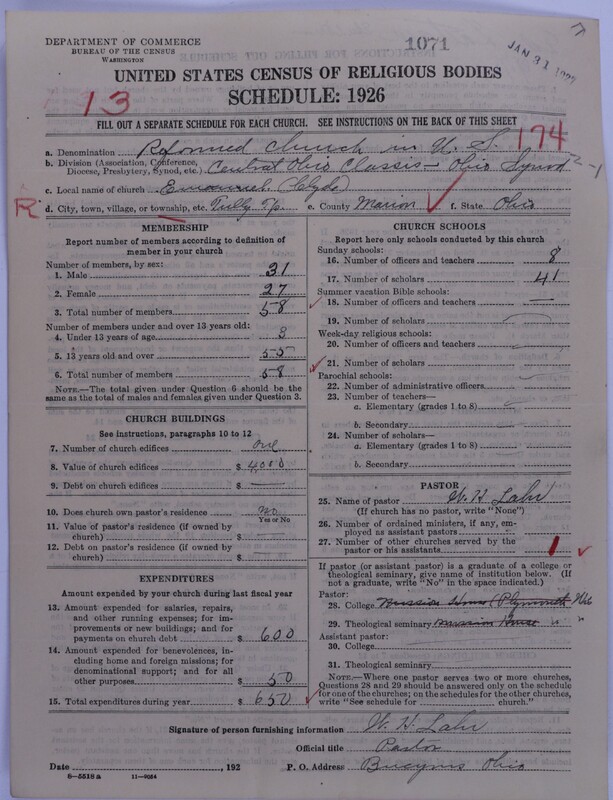 DEPARTMENT OF COMMERCE
BUREAU OF THE CENSUS
WASHINGTON
1071
JAN 31
UNITED STATES CENSUS OF RELIGIOUS BODIES
SCHEDULE: 1926
13
FILL OUT A SEPARATE SCHEDULE FOR EACH CHURCH. SEE INSTRUCTIONS ON THE BACK OF THIS SHEET
174
a. Denomination Reformed Church in U. S.
b. Division (Association, Conference, Diocese, Presbytery, Synod, etc.) Central Ohio Classis – Ohio Synod
c. Local name of church Emanuel (Clyde)
R
d. City, town, village, or township, etc. Tully Tp. e. County Marion f. State Ohio
MEMBERSHIP
Report number of members according to definition of member in your church
Number of members, by sex:
1. Male 31
2. Female 27
3. Total number of members 58
Number of members under and over 13 years old:
4. Under 13 years of age 3
5. 13 years old and over 55
6. Total number of members 58
NOTE.—The total given under Question 6 should be the same as the total of males and females given under Question 3.
CHURCH BUILDINGS
See instructions, paragraphs 10 to 12
7. Number of church edifices one
8. Value of church edifices $ 4000
9. Debt on church edifices $ —
10. Does church own pastor's residence? no
Yes or No
11. Value of pastor's residence (if owned by church) $ —
12. Debt on pastor's residence (if owned by church) $ —
EXPENDITURES
Amount expended by your church during last fiscal year
13. Amount expended for salaries, repairs, and other running expenses; for improvements or new buildings; and for payments on church debt $ 600
14. Amount expended for benevolences, including home and foreign missions; for denominational support; and for all other purposes $ 50
15. Total expenditures during year $ 650
CHURCH SCHOOLS
Report here only schools conducted by this church
Sunday schools:
16. Number of officers and teachers 8
17. Number of scholars 41
Summer vacation Bible schools:
18. Number of officers and teachers —
19. Number of scholars —
Week-day religious schools:
20. Number of officers and teachers —
21. Number of scholars —
Parochial schools:
22. Number of administrative officers —
23. Number of teachers—
a. Elementary (grades 1 to 8) —
b. Secondary
24. Number of scholars—
a. Elementary (grades 1 to 8) —
b. Secondary
PASTOR
25. Name of pastor W. H. Lahr
(If church has no pastor, write "None")
26. Number of ordained ministers, if any, employed as assistant pastors
27. Number of other churches served by the pastor or his assistants 1
If pastor (or assistant pastor) is a graduate of a college or theological seminary, give name of institution below. (If not a graduate, write "No" in the space indicated.)
Pastor:
28. College Mission House (Plymouth Wis
29. Theological seminary Mission House " "
Assistant pastor:
30. College
31. Theological seminary
NOTE.—Where one pastor serves two or more churches, Questions 28 and 29 should be answered only on the schedule for one of the churches; on the schedules for the other churches, write "See schedule for church."
Signature of person furnishing information W. H. Lahr
Official title Pastor
Date , 192 P. O. Address Bucyrus Ohio
6—5518 a 11—9054